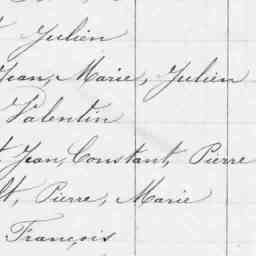 Julien
Jean, Marie, Julien
Valentin
Jean, Constant, Pierre
Pierre, Marie
François